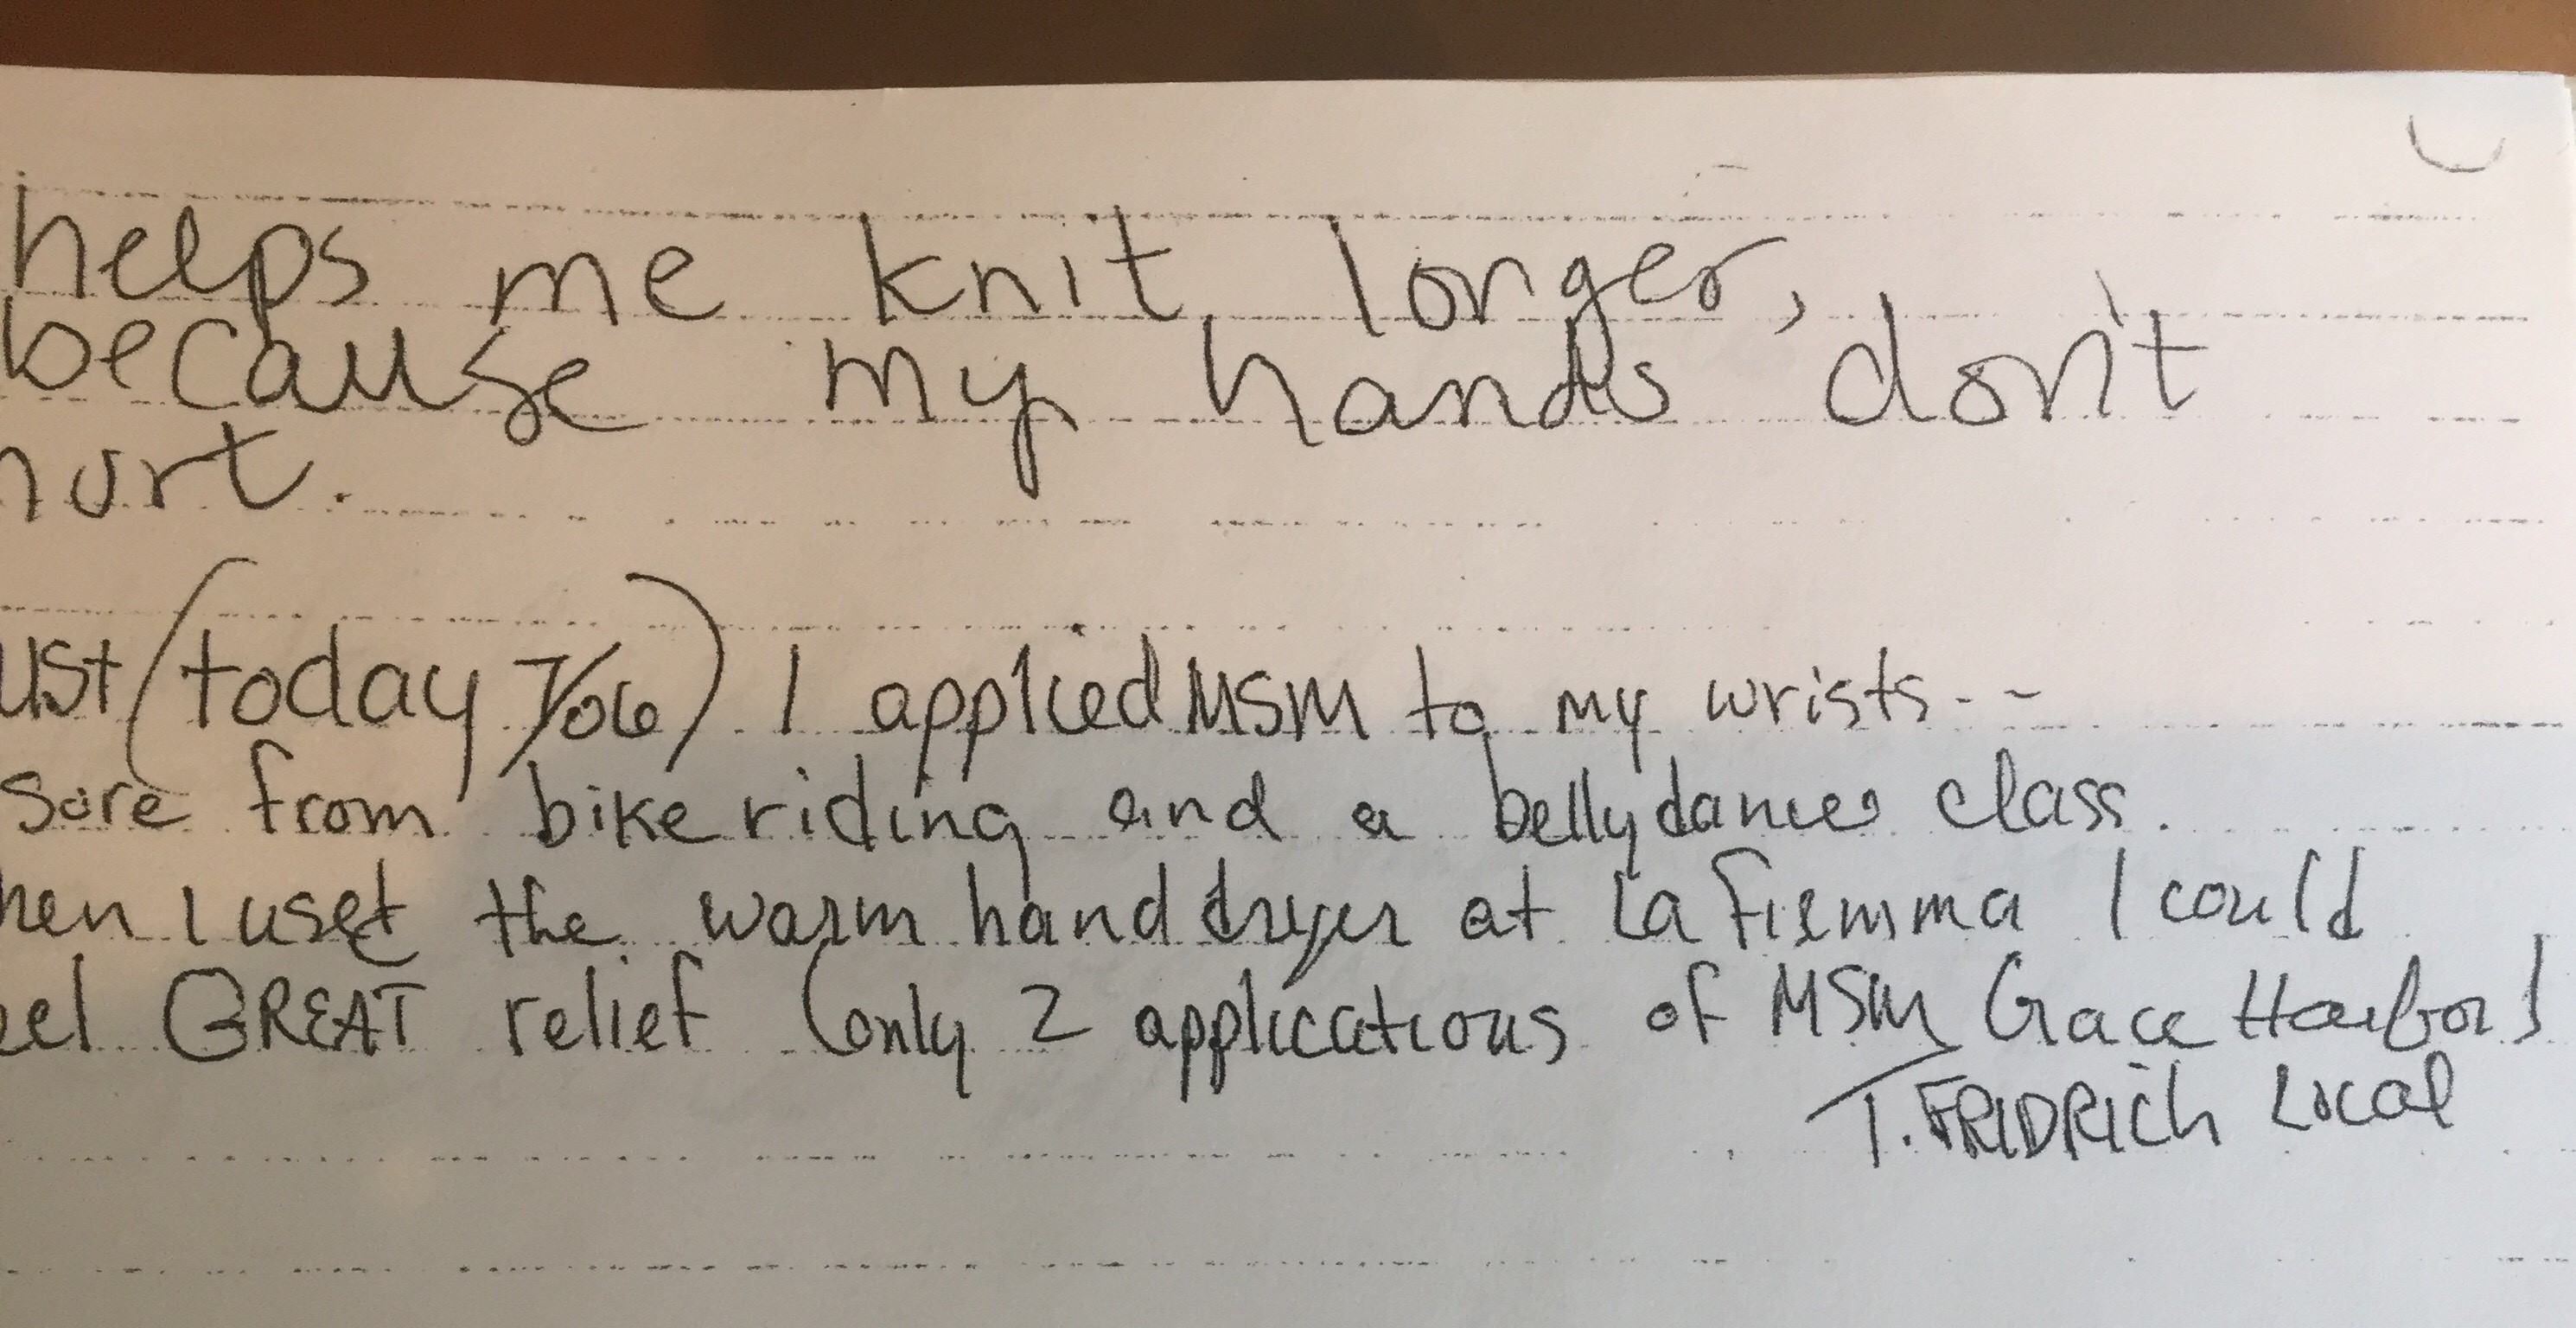 helps me knit longer,
because my hands don't
hurt.
ust (today 7/06) I applied MSM to my wrists - -
sore from bike riding and a bellydance class.
hen I uset the warm hand dryer at La Fiemma I could
eel GREAT relief (only 2 applications of MSM Grace Harbor!
T. FRIDRich Local